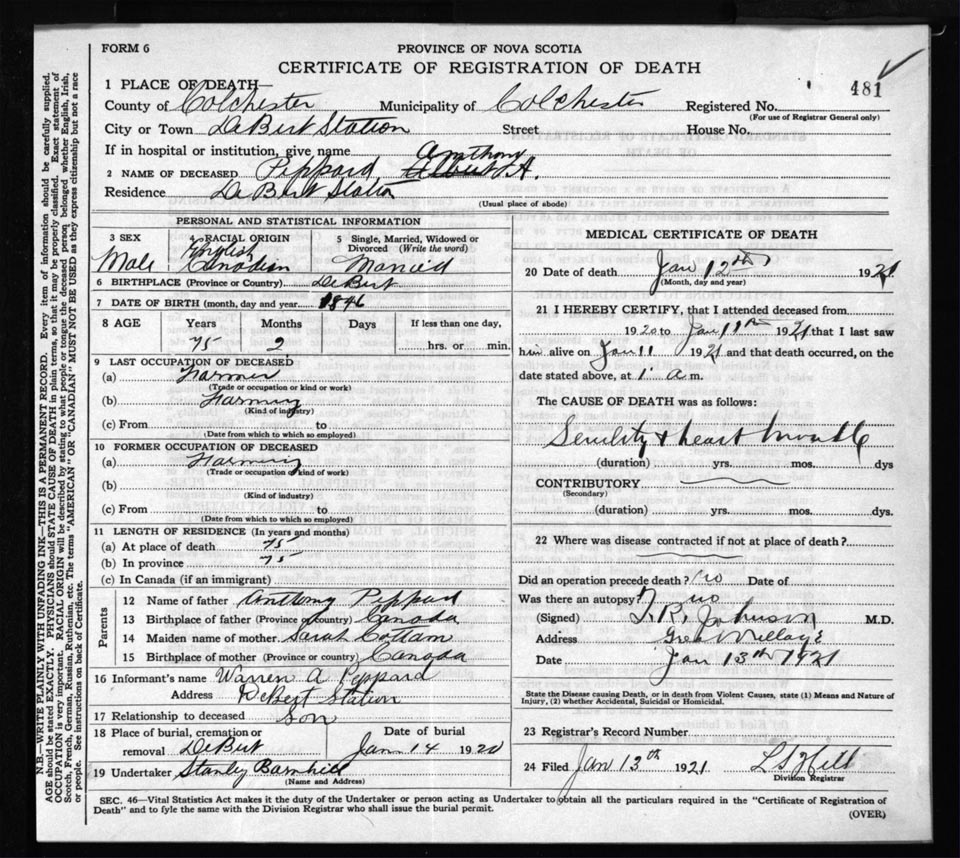 FORM 6
PROVINCE OF NOVA SCOTIA
CERTIFICATE OF REGISTRATION OF DEATH
481
1 PLACE OF DEATH—
County of Colchester Municipality of Colchester Registered No.
(For use of Registrar General only)
City or Town DeBert Station Street House No.
If in hospital or institution, give name
Anthony
2 NAME OF DECEASED Peppard, Albert A.
Residence DeBert Station
(Usual place of abode)
PERSONAL AND STATISTICAL INFORMATION
3 SEX 4 RACIAL ORIGIN 5 Single, Married, Widowed or Divorced (Write the word)
Male English Canadian Married
6 BIRTHPLACE (Province or Country) DeBert
7 DATE OF BIRTH (month, day and year) 1846
8 AGE Years Months Days If less than one day,
75 2 hrs. or min.
9 LAST OCCUPATION OF DECEASED
(a) Farmer
(Trade or occupation or kind or work)
(b) Farming
(Kind of industry)
(c) From to
(Date from which to which so employed)
10 FORMER OCCUPATION OF DECEASED
(a) Farming
(Trade or occupation or kind of work)
(b)
(Kind of industry)
(c) From to
(Date from which to which so employed)
11 LENGTH OF RESIDENCE (In years and months)
(a) At place of death 75
(b) In province 75
(c) In Canada (if an immigrant)
Parents
12 Name of father Anthony Peppard
13 Birthplace of father (Province or country) Canada
14 Maiden name of mother Sarah Cottam
15 Birthplace of mother (Province or country) Canada
16 Informant's name Warren A Peppard
Address DeBert Station
17 Relationship to deceased Son
18 Place of burial, cremation or removal DeBert Date of burial Jan 14 1920
19 Undertaker Stanley Barnhill
(Name and Address)
MEDICAL CERTIFICATE OF DEATH
20 Date of death Jan 12th 1921
(Month, day and year)
21 I HEREBY CERTIFY, that I attended deceased from
1920 to Jan 11th 1921 that I last saw
him alive on Jan 11 1921 and that death occurred, on the
date stated above, at 1 a m.
The CAUSE OF DEATH was as follows:
Senility & heart trouble
(duration) yrs. mos. dys
CONTRIBUTORY
(Secondary)
(duration) yrs. mos. dys.
22 Where was disease contracted if not at place of death?
Did an operation precede death? no Date of
Was there an autopsy? no
(Signed) T. R. Johnson M.D.
Address Great Village
Date Jan 13th 1921
State the Disease causing Death, or in death from Violent Causes, state (1) Means and Nature of
Injury, (2) whether Accidental, Suicidal or Homicidal.
23 Registrar's Record Number
24 Filed Jan 13th 1921 Hill
Division Registrar
SEC. 46—Vital Statistics Act makes it the duty of the Undertaker or person acting as Undertaker to obtain all the particulars required in the "Certificate of Registration of
Death" and to fyle the same with the Division Registrar who shall issue the burial permit.
(OVER)
N.B.—WRITE PLAINLY WITH UNFADING INK—THIS IS A PERMANENT RECORD. Every item of information should be carefully supplied.
AGE should be stated EXACTLY. PHYSICIANS should STATE CAUSE OF DEATH in plain terms, so that it may be properly classified. Exact statement of
OCCUPATION is very important. RACIAL ORIGIN will be described by stating to what people or tongue the deceased person belonged whether English, Irish,
Scotch, French, German, Russian, Ruthenian, etc. The terms "AMERICAN" OR "CANADIAN" MUST NOT BE USED as they express citizenship but not a race
or people. See instructions on back of Certificate.